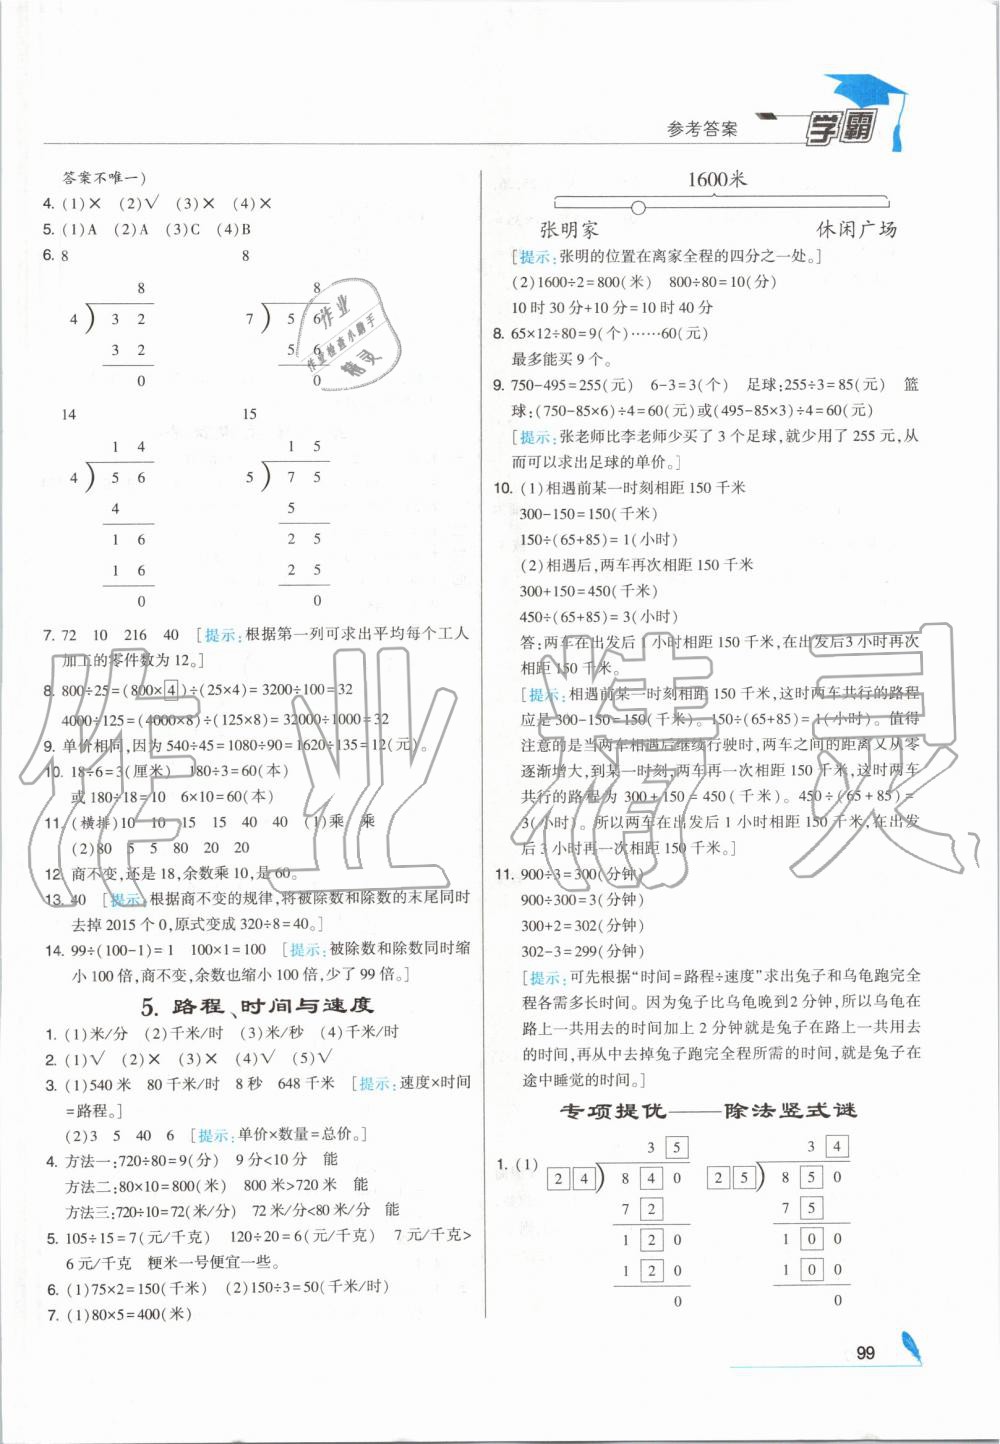 参考答案
学霸
答案不唯一)
4. (1)× (2)√ (3)× (4)×
5. (1)A (2)A (3)C (4)B
6. 8 8
8
4 ) 3 2
3 2
0
8
7 ) 5 6
5 6
0
14 15
1 4
4 ) 5 6
4
1 6
1 6
0
1 5
5 ) 7 5
5
2 5
2 5
0
7. 72 10 216 40 [提示:根据第一列可求出平均每个工人
加工的零件数为12。]
8. 800÷25=(800×4)÷(25×4)=3200÷100=32
4000÷125=(4000×8)÷(125×8)=32000÷1000=32
9. 单价相同,因为540÷45=1080÷90=1620÷135=12(元)。
10. 18÷6=3(厘米) 180÷3=60(本)
或180÷18=10 6×10=60(本)
11. (横排)10 10 15 15 40 40 (1)乘 乘
(2)80 5 5 80 20 20
12. 商不变,还是18,余数乘10,是60。
13. 40 [提示:根据商不变的规律,将被除数和除数的末尾同时
去掉2015个0,原式变成320÷8=40。]
14. 99÷(100-1)=1 100×1=100 [提示:被除数和除数同时缩
小100倍,商不变,余数也缩小100倍,少了99倍。]
5. 路程、时间与速度
1. (1)米/分 (2)千米/时 (3)米/秒 (4)千米/时
2. (1)√ (2)× (3)× (4)√ (5)√
3. (1)540米 80千米/时 8秒 648千米 [提示:速度×时间
=路程。]
(2)3 5 40 6 [提示:单价×数量=总价。]
4. 方法一:720÷80=9(分) 9分<10分 能
方法二:80×10=800(米) 800米>720米 能
方法三:720÷10=72(米/分) 72米/分<80米/分 能
5. 105÷15=7(元/千克) 120÷20=6(元/千克) 7元/千克>
6元/千克 粳米一号便宜一些。
6. (1)75×2=150(千米) (2)150÷3=50(千米/时)
7. (1)80×5=400(米)
1600米
张明家 休闲广场
[提示:张明的位置在离家全程的四分之一处。]
(2)1600÷2=800(米) 800÷80=10(分)
10时30分+10分=10时40分
8. 65×12÷80=9(个)……60(元)
最多能买9个。
9. 750-495=255(元) 6-3=3(个) 足球:255÷3=85(元) 篮
球:(750-85×6)÷4=60(元)或(495-85×3)÷4=60(元)
[提示:张老师比李老师少买了3个足球,就少用了255元,从
而可以求出足球的单价。]
10. (1)相遇前某一时刻相距150千米
300-150=150(千米)
150÷(65+85)=1(小时)
(2)相遇后,两车再次相距150千米
300+150=450(千米)
450÷(65+85)=3(小时)
答:两车在出发后1小时相距150千米,在出发后3小时再次
相距150千米。
[提示:相遇前某一时刻相距150千米,这时两车共行的路程
应是300-150=150(千米)。150÷(65+85)=1(小时)。值得
注意的是当两车相遇后继续行驶时,两车之间的距离又从零
逐渐增大,到某一时刻,两车再一次相距150千米,这时两车
共行的路程为300+150=450(千米)。450÷(65+85)=
3(小时)。所以两车在出发后1小时相距150千米,在出发
后3小时再一次相距150千米。]
11. 900÷3=300(分钟)
900÷300=3(分钟)
300+2=302(分钟)
302-3=299(分钟)
[提示:可先根据“时间=路程÷速度”求出兔子和乌龟跑完全
程各需多长时间。因为兔子比乌龟晚到2分钟,所以乌龟在
路上一共用去的时间加上2分钟就是兔子在路上一共用去
的时间,再从中去掉兔子跑完全程所需的时间,就是兔子在
途中睡觉的时间。]
专项提优——除法竖式谜
1. (1)
3 5
2 4 ) 8 4 0
7 2
1 2 0
1 2 0
0
3 4
2 5 ) 8 5 0
7 5
1 0 0
1 0 0
0
99
作业精灵
作业
作业检查小助手
精灵